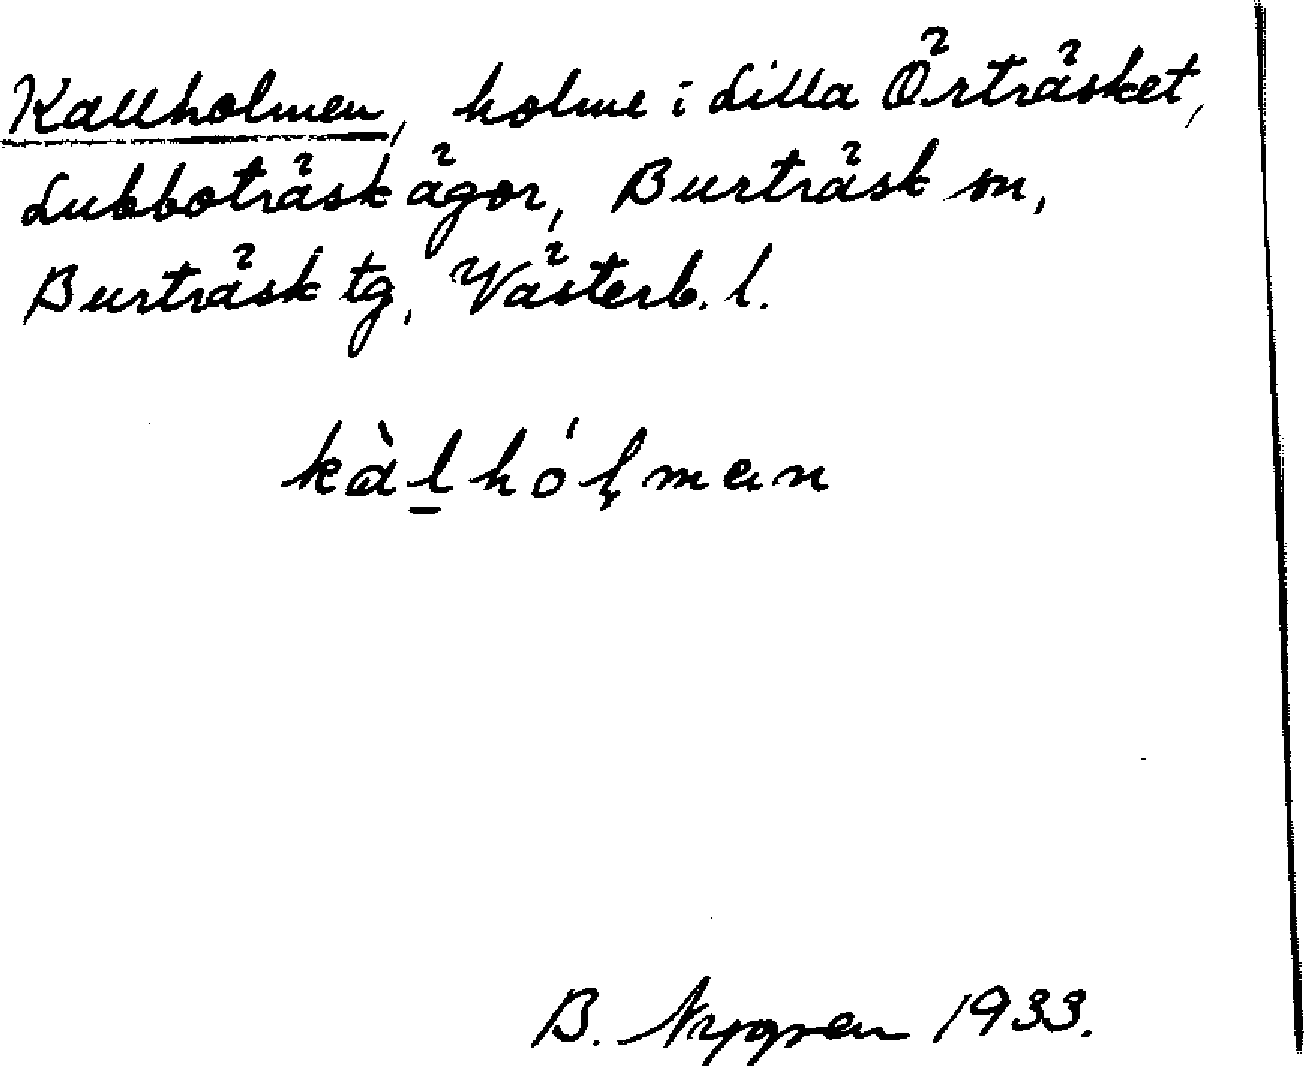 Kallholmen, holme i Lilla Örträsket,
Lubboträsk ägor, Burträsk sn,
Burträsk tg, Västerb. l.
kàl̲hól̥men
B. Nygren 1933.